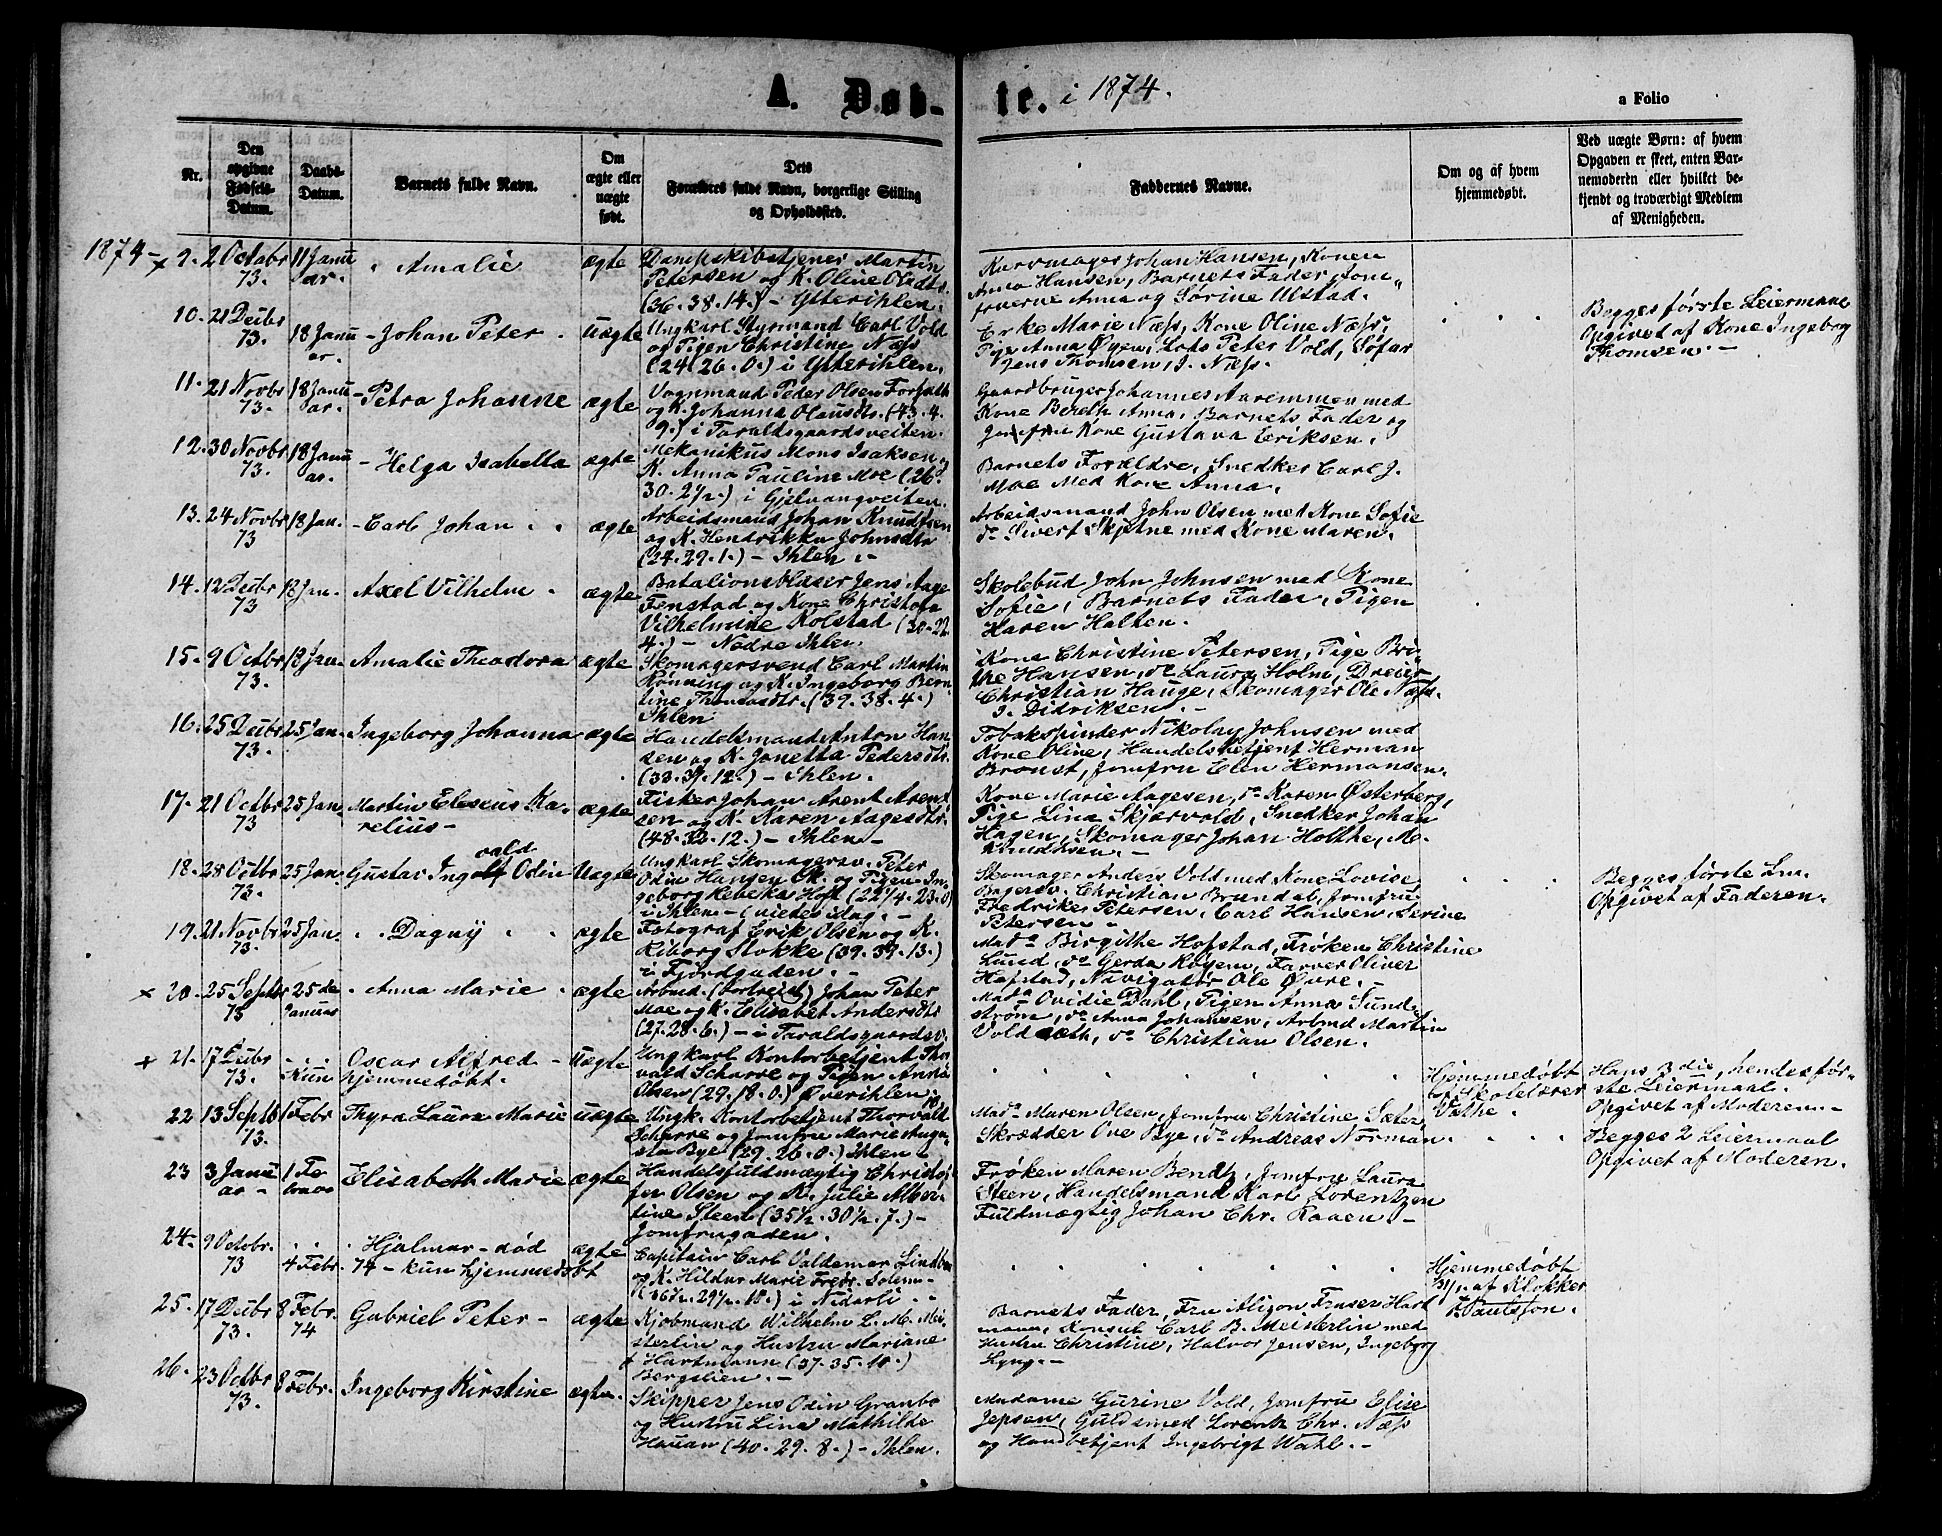 A. Døb-
te. i 1874.
a Folio
Nr.
Den opgivne Fødsels-Datum.
Daabs-Datum.
Barnets fulde Navn.
Om ægte eller uægte født.
Dets Forældres fulde Navn, borgerlige Stilling og Opholdssted.
Faddernes Navne.
Om og af hvem hjemmedøbt.
Ved uægte Børn: af hvem Opgaven er skeet, enten Barnemoderen eller hvilket bekjendt og troværdigt Medlem af Menigheden.
1874 -
9. 2 Octobr 73. 11 Januar. Amalie ægte
Dampskibstjener Martin
Petersen og K. Oline
(36. 38. 14.) - Ytterihlen.
Johan Hansen, Konen
Anna Hansen, Barnets Fader, Jom-
fruerne Anna og Sørine Ulstad.
10. 21 Decbr 73. 18 Januar. - Johan Peter uægte
Ungkarl Styrmand Carl Vold
og Pigen Christine Næss
(24. 26. 0.) i Ytterihlen.
Marie Næss, Kone Oline Næss,
Pige Anna Øyen, Lods Peter Vold, Søfar
Jens Thomsen, J. Næss.
Begges første Leiermaal
Opgivet af Kone Ingeborg
Thomsen. -
11. 21 Novbr 73. 18 Januar. - Petra Johanne ægte
Vognmand Peder Olsen
og K. Johanna Olausdtr. (43. 4
9.) i Taraldsgaardsveiten.
Gaardbruger Johannes Aaremmen med
Kone Bereth Anna, Barnets Fader og
Kone Gustava Eriksen.
12. 30 Novbr 73. 18 Januar. - Helga Isabella ægte
Mekanikus Mons Isaksen og
K. Anna Pauline Moe (26.
30. 2½.) i Gjelvangveiten.
Barnets Forældre, Snedker Carl J.
Moe med Kone Anna.
13. 24 Novbr 73 18 Jan. - Carl Johan ægte
Arbeidsmand Johan Knudsen
og K. Hendrikka Johnsdtr
(24. 29. 1.) - Ihlen.
Arbeidsmand John Olsen med Kone Sofie
do Sivert Skjetne med Kone Maren.
14. 12 Decbr 73 18 Jan. Axel Vilhelm ægte
Batalionsblæser Jens Aage
Fenstad og Kone Christofa
Vilhelmine Kolstad (30. 22
4.) - Nedre Ihlen.
Skolebud John Johnsen med Kone
Sofie, Barnets Fader, Pigen
Maren Halten.
15. 9 Octbr 73. 18 Jan. Amalie Theodora ægte
Skomagersvend Carl Martin
Rønning og K. Ingeborg Bern-
tine Thomasdtr. (39. 38. 4.)
Ihlen
Kone Christine Petersen, Pige Bri-
the Hansen, do Laura Holm, Dreier
Christian Hauge, Skomager Ole Næss.
J. Didriksen. -
16. 25 Decbr 73. 25 Jan. Ingeborg Johanna ægte
Handelsmand Anton Han
sen og K. Jonetta Pedersdtr.
(33. 37. 12.) - Ihlen.
Tobakspinder Nikolay Johnsen med
Kone Oline, Handelsbetjent Herman
Bronst, Jomfru Elen Hermansen.
17. 21 Octbr 73 25 Jan. Martin Eliseus Ka-
relius - ægte
Fisker Johan Arent Arent
sen og K. Karen Aagesdtr.
(48. 32. 12.) - Ihlen -
Kone Marie Aagesen, do Karen Østerberg,
Pige Lina Skjærvold, Snedker Johan
Hagen, Skomager Johan Holthe, M.
Knudtsen. -
18. 28 Octbr 73. 25 Jan. Gustav Ingvald Odin Uægte
Ungkarl Skomagersv. Peter
Odin Hansen Ok. og Pigen In-
geborg Rebeka Hoff (22¼. 23. 0)
i Ihlen - (viedes idag. -
Skomager Anders Vold med Kone Lovise
Bagersv. Christian Brundal, Jomfru
Fredrikke Petersen, Carl Hansen, Serine
Petersen -
Begges første Lm.
Opgivet af Faderen.
19. 21 Novbr 73. 25 Jan. Dagny ægte
Fotograf Erik Olsen og K.
Riborg Stokke (39. 39. 13.)
i Fjordgaden. -
Mada Birgithe Hofstad, Frøken Christine
Lund, do Gerda Røyem, Farver Oliver
Hofstad, Navigatør Ole Øvre. -
20. 25 Septbr 73 25de Januar Anna Marie ægte
Arbmd. Johan Peter
Moe og K. Elisabet Andersdtr
(27. 28. 6.) - i Taraldsgaardsv.
Mada Ovidie Dahl, Pigen Anna Sunde
strøm, do Anna Johansen, Arbmd Martin
Vold do Christian Olsen.
21. 17 Decbr 73. Kun hjemmedøbt. Oscar Alfred - Uægte
Ungkarl Kontorbetjent Thor
vald Scharre og Pigen Anna
Olsen (29. 18. 0.) Øverihlen
Hjemmedøbt
af Skolelærer
Vethe.
Hans 3die, hendes før-
ste Leiermaal.
Opgivet af Moderen. -
22 13 Septb 73. 1 Febr Thyra Laura Marie uægte
Ungk. Kontorbetjent Thorvald
Scharre og Jomfru Marie Augu
sta Bye (29. 26. 0.) Ihlen -
Mada Maren Olsen, Jomfru Christine Sæter,
Skrædder Ove Bye, do Andreas Norman.
Begges 2 Leiermaal
Opgivet af Moderen.
23 3 Januar - 1 Februar Elisabeth Marie ægte
Handelsfuldmægtig Christof-
fer Olsen og K. Julie Alber-
tine Steen (35½. 30½. 7.) -
Jomfrugaden.
Frøken Maren Bendz, Jomfru Laura
Steen, Handelsmand Karl Lorentzen
Fuldmægtig Johan Chr. Raaen. -
24. 9 Octobr. 73 . . Hjalmar - død
4 Febr. 74 - kun hjemmedøbt ægte
Capitain Carl Valdemar Lindbm
og K. Hildur Marie Fredr. Solem
(36½. 29½. 10.) i Nidarli.
Hjemmedøbt
3/11. af Klokker
Paulsson.
25. 17 Decbr 73. 8 Febr. 74 Gabriel Peter - ægte
Kjøbmand Wilhelm L. M. Mei-
sterlin og Hustru Mariane
f Hartmann (37. 35. 10.)
Bergslien. -
Barnets Fader, Fru Alison Fraser Hart
mann, Konsul Carl B. Meisterlin med
Hustru Christine, Halvor Jensen, Ingeborg
Lyng. -
26. 23 Octbr 73. 8 Febr. Ingeborg Kirstine ægte.
Skipper Jens Odin Granbo
og Hustru Lina Mathilde
Hauan (40. 29. 8.) - Ihlen.
Madame Gurine Vold, Jomfru Elise
Jepsen, Guldsmed Lorentz Chr. Næss
og Handbetjent Ingebrigt Wahl. -